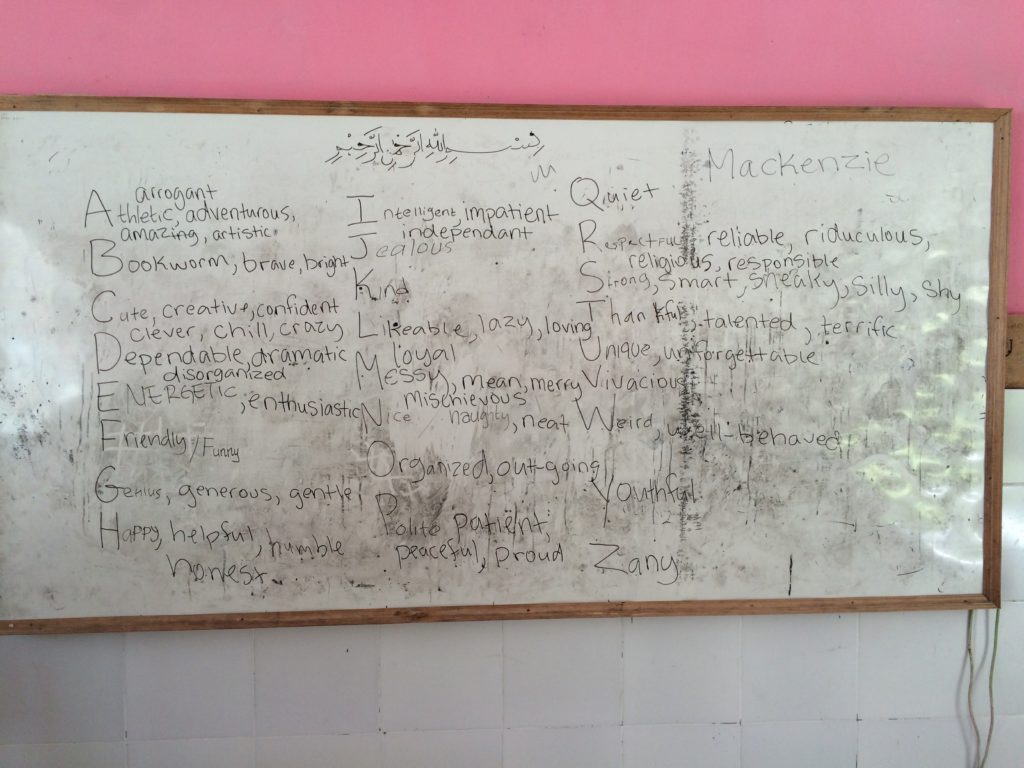 بسم الله الرحمن الرحيم
Mackenzie
arrogant
Athletic, adventurous,
amazing, artistic
Bookworm, brave, bright
Cute, creative, confident
clever, chill, crazy
Dependable, dramatic
disorganized
ENERGETIC, enthusiastic
Friendly, Funny
Genius, generous, gentle
Happy, helpful, humble
honest
Intelligent, impatient
independant
Jealous
Kind
Likeable, lazy, loving
loyal
Messy, mean, merry
mischievous
Nice naughty, neat
Organized, out-going
Polite patient,
peaceful, proud
Quiet
Respectful, reliable, riduculous,
religious, responsible
Strong, smart, sneaky, silly, shy
Thankful, talented, terrific
Unique, unforgettable
Vivacious
Weird, well-behaved
Youthful
Zany